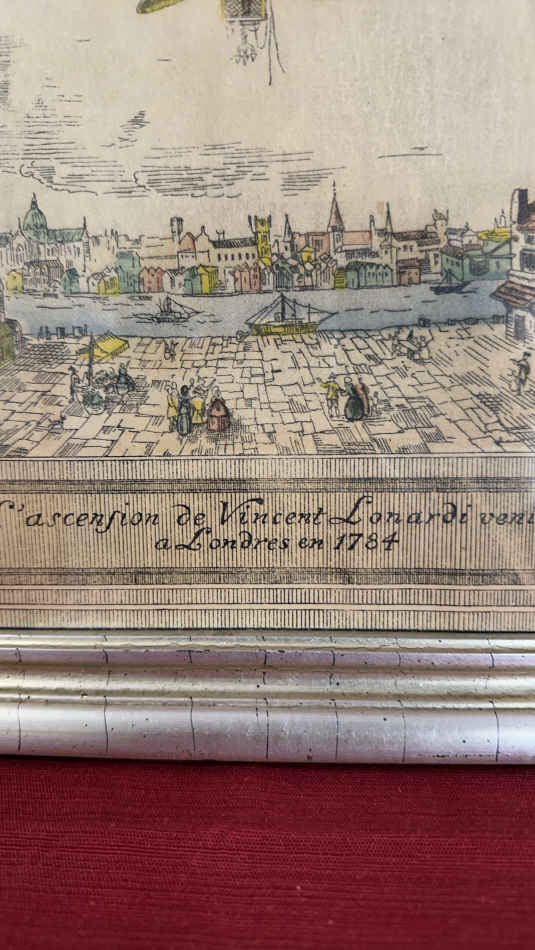 L'ascenſion de Vincent Lonardi
a Londres en 1784